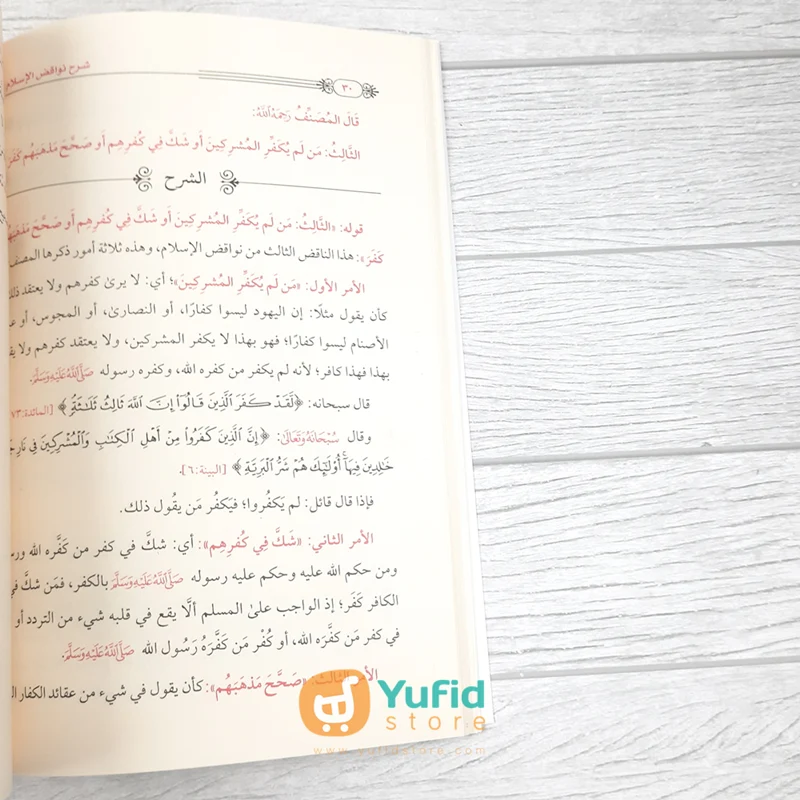 شرح نواقض الإسلام
٣٠
قَالَ المُصَنِّفُ رَحِمَهُ ٱللَّهُ:
الثَّالِثُ: مَن لَم يُكَفِّرِ المُشرِكِينَ أَو شَكَّ فِي كُفرِهِم أَو صَحَّحَ مَذهَبَهُم كَفَرَ
الشرح
قوله: «الثَّالِثُ: مَن لَم يُكَفِّرِ المُشرِكِينَ أَو شَكَّ فِي كُفرِهِم أَو صَحَّحَ
كَفَرَ»: هذا الناقض الثالث من نواقض الإسلام، وهذه ثلاثة أمور ذكرها المصنف
الأمر الأول: «مَن لَم يُكَفِّرِ المُشرِكِينَ»؛ أي: لا يرىٰ كفرهم ولا يعتقد
كأن يقول مثلًا: إن اليهود ليسوا كفارًا، أو النصارىٰ، أو المجوس، أو
الأصنام ليسوا كفارًا؛ فهو بهذا لا يكفر المشركين، ولا يعتقد كفرهم ولا
بهذا فهذا كافر؛ لأنه لم يكفر من كفره الله، وكفره رسوله صَلَّى ٱللَّهُ عَلَيْهِ وَسَلَّمَ.
قال سبحانه: ﴿لَّقَدۡ كَفَرَ ٱلَّذِينَ قَالُوٓاْ إِنَّ ٱللَّهَ ثَالِثُ ثَلَٰثَةٖ﴾ [المائدة:٧٣
وقال سُبْحَانَهُ وَتَعَالَىٰ: ﴿إِنَّ ٱلَّذِينَ كَفَرُواْ مِنۡ أَهۡلِ ٱلۡكِتَٰبِ وَٱلۡمُشۡرِكِينَ فِي نَارِ
خَٰلِدِينَ فِيهَآۚ أُوْلَٰٓئِكَ هُمۡ شَرُّ ٱلۡبَرِيَّةِ﴾ [البينة:٦].
فإذا قال قائل: لم يَكفُروا؛ فيَكفُر مَن يقُول ذلك.
الأمر الثاني: «شَكَّ فِي كُفرِهِم»: أي: شكَّ في كفر من كَفَّره الله
ومن حكم الله عليه وحكم عليه رسوله صَلَّى ٱللَّهُ عَلَيْهِ وَسَلَّمَ بالكفر، فمَن شكَّ
الكافر كَفَر؛ إذ الواجب علىٰ المسلم ألَّا يقع في قلبه شيء من التردد أو
في كفر مَن كَفَّرَه الله، أو كُفْر مَن كَفَّرَهُ رَسُول الله صَلَّى ٱللَّهُ عَلَيْهِ وَسَلَّمَ.
الأمر الثالث: «صَحَّحَ مَذهَبَهُم»: كأن يقول في شيء من عقائد الكفار
Yufid
store
www.yufidstore.com